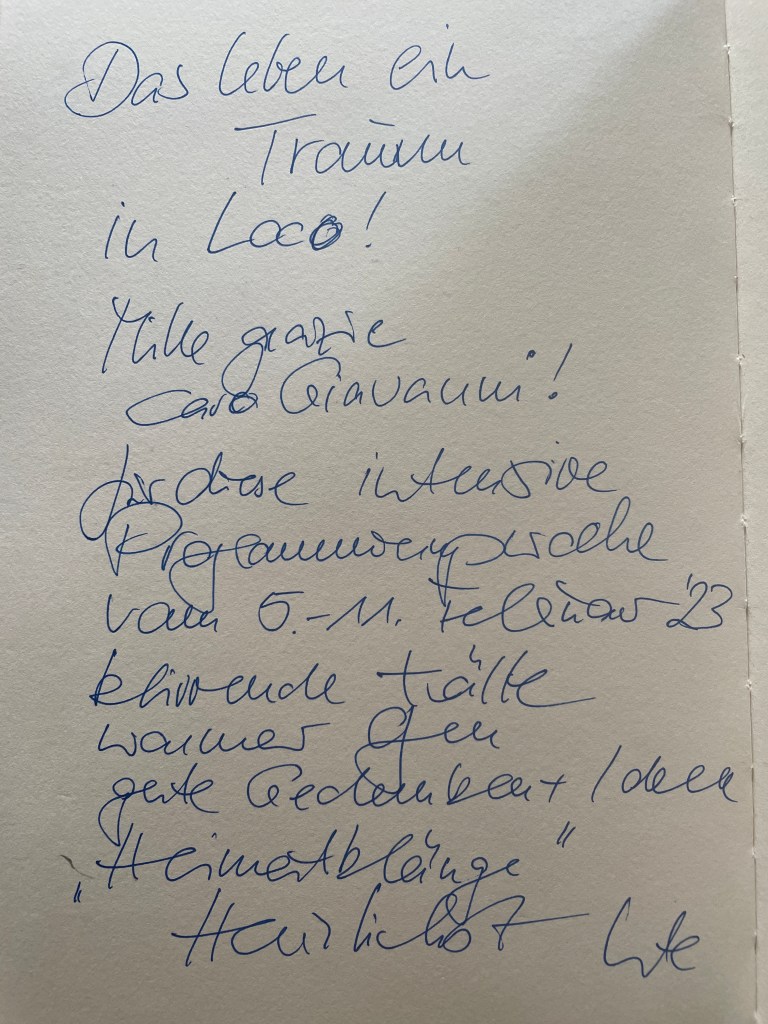 Das Leben ein
Traum
in Loco!
Mille grazie
caro Giovanni!
für diese intensive
Programmierwoche
vom 5.-11. Februar '23
klirrende Kälte
warmer Ofen
gute Gedanken + Ideen
„Heimatklänge“
Herzlichst